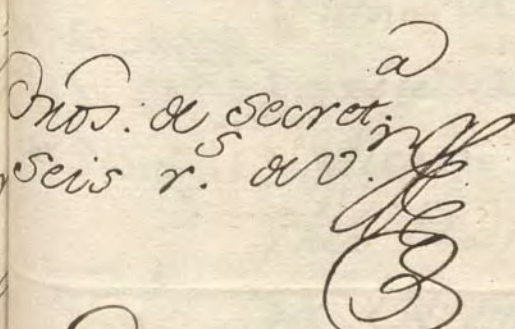 Dros. de Secret.ª
seis r.ˢ de v.ⁿ